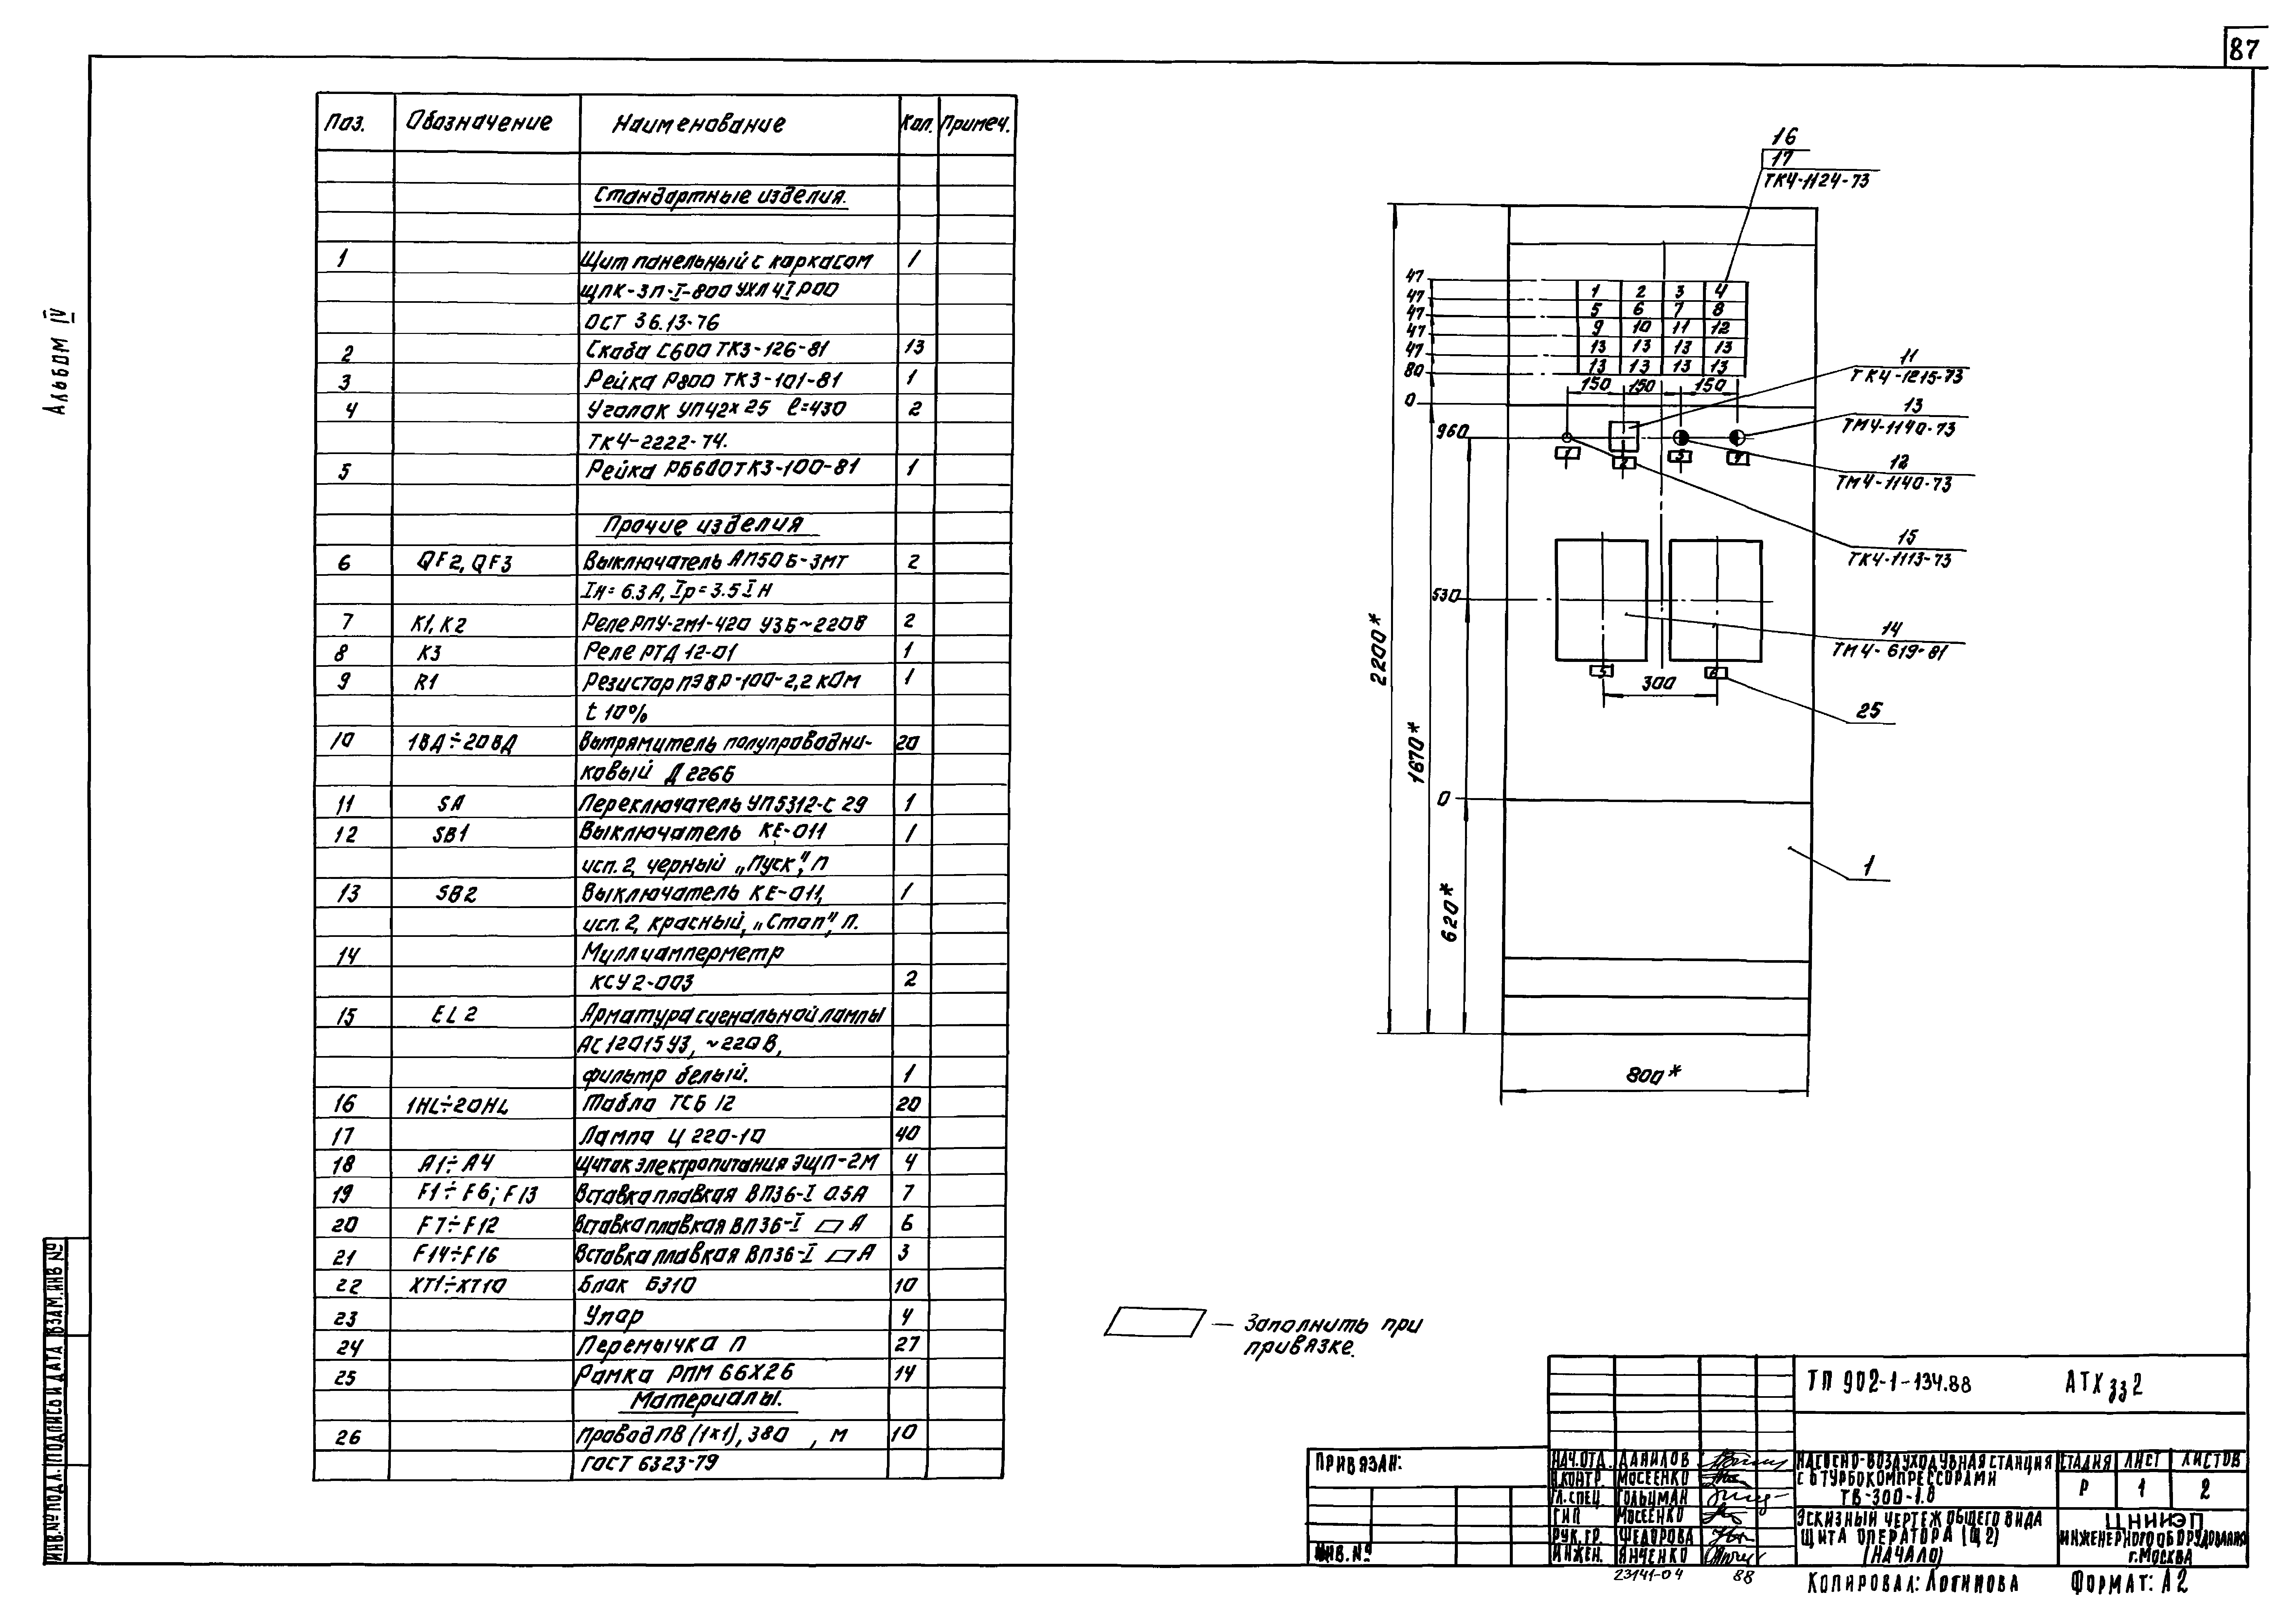 87
Альбом IV
Поз. Обозначение Наименование Кол. Примеч.
Стандартные изделия.
1 Щит панельный с каркасом 1
ЩПК-3П-I-800 УХЛ4 IP00
ОСТ 36.13-76
2 Скоба С600 ТК3-126-81 13
3 Рейка Р800 ТК3-101-81 1
4 Уголок УП42х25 ℓ=430 2
ТК4-2222-74.
5 Рейка РБ600ТК3-100-81 1
Прочие изделия
6 QF2, QF3 Выключатель АП50Б-3МТ 2
Iн=6.3А, Iр=3.5Iн
7 К1, К2 Реле РПУ-2М1-420 У3Б ~220В 2
8 К3 Реле РТД 12-01 1
9 R1 Резистор ПЭВР-100-2,2 кОм 1
t 10%
10 1ВД÷20ВД Выпрямитель полупроводни- 20
ковый Д226Б
11 SA Переключатель УП5312-С 29 1
12 SB1 Выключатель КЕ-011 1
исп. 2, черный „Пуск", П
13 SB2 Выключатель КЕ-011, 1
исп. 2, красный, „Стоп", П.
14 Миллиамперметр
КСУ2-003 2
15 EL2 Арматура сигнальной лампы
АС12015У3, ~220В,
фильтр белый. 1
16 1HL÷20HL Табло ТСБ 12 20
17 Лампа Ц 220-10 40
18 А1÷А4 Щиток электропитания ЭЩП-2М 4
19 F1÷F6; F13 Вставка плавкая ВП36-I 0.5А 7
20 F7÷F12 Вставка плавкая ВП36-I ▱ А 6
21 F14÷F16 Вставка плавкая ВП36-I ▱ А 3
22 ХТ1÷ХТ10 Блок БЗ10 10
23 Упор 4
24 Перемычка П 27
25 Рамка РПМ 66Х26 14
Материалы.
26 Провод ПВ (1х1), 380 , м 10
ГОСТ 6323-79
16
17
ТК4-1124-73
47
47
47
47
47
80
0
1 2 3 4
5 6 7 8
9 10 11 12
13 13 13 13
13 13 13 13
150 150 150
11
ТК4-1215-73
13
ТМ4-1140-73
960
1 2 3 4
12
ТМ4-1140-73
15
ТК4-1113-73
530
14
ТМ4-619-81
5 6
300
25
2200*
1670*
0
620*
1
800*
— Заполнить при
привязке.
ТП 902-1-134.88 АТХ ЗЗ2
ПРИВЯЗАН:
ИНВ. №
НАЧ.ОТД. ДАНИЛОВ
Н.КОНТР. МОСЕЕНКО
ГЛ.СПЕЦ. ГОЛЬЦМАН
ГИП МОСЕЕНКО
РУК.ГР. ФЕДОРОВА
ИНЖЕН. ЯНЧЕНКО
НАСОСНО-ВОЗДУХОДУВНАЯ СТАНЦИЯ
С 6 ТУРБОКОМПРЕССОРАМИ
ТВ-300-1.6
СТАДИЯ ЛИСТ ЛИСТОВ
Р 1 2
ЭСКИЗНЫЙ ЧЕРТЕЖ ОБЩЕГО ВИДА
ЩИТА ОПЕРАТОРА (Щ2)
(НАЧАЛО)
ЦНИИЭП
ИНЖЕНЕРНОГО ОБОРУДОВАНИЯ
г. МОСКВА
23141-04 88
КОПИРОВАЛ: ЛОГИНОВА ФОРМАТ: А2
ИНВ.№ ПОДЛ. ПОДПИСЬ И ДАТА ВЗАМ.ИНВ №